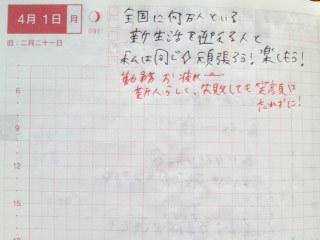 4月 1日 月
旧:二月二十一日
全国に何万人といる
新生活を迎える人と
私は同じ 頑張ろう!楽しもう!
勤務 お疲れー
新人らしく、失敗しても笑顔は
忘れずに!
6
8
10
11
12
13
14
15
16
17